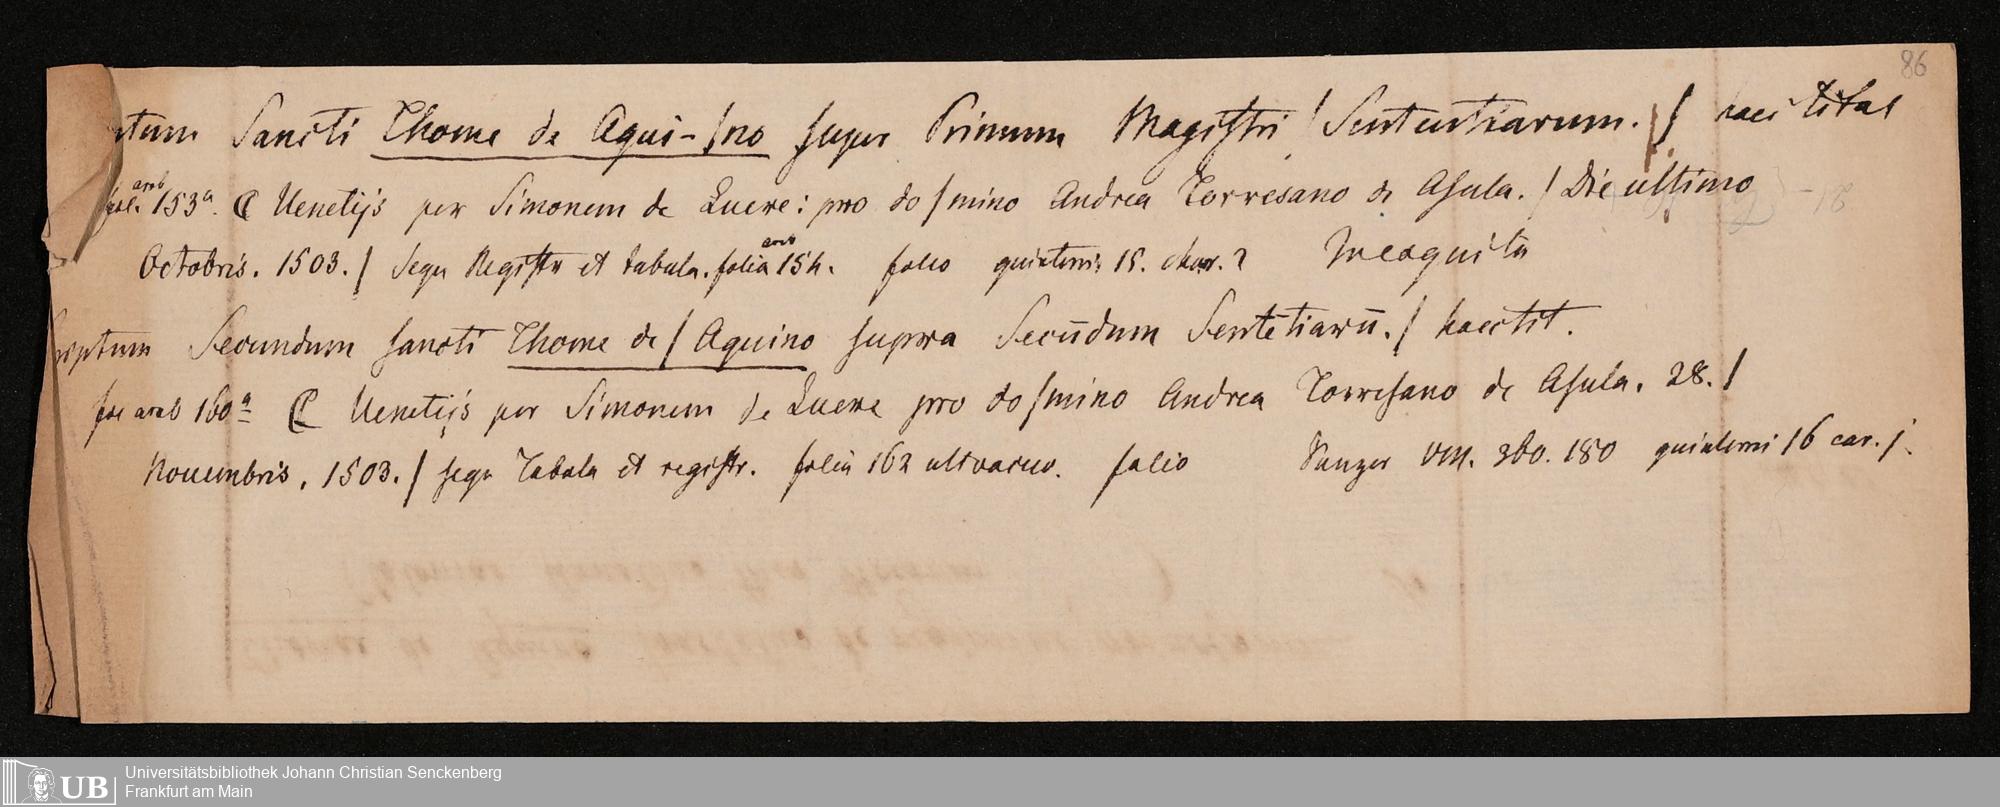 86
ptum Sancti Thome de Aqui-/no super Primum Magistri / Sententiarum. / haec titul
fol. arab 153a. ₵ Uenetijs per Simonem de Luere: pro do/mino Andrea Torresano de Asula. / Die ultimo
Octobris. 1503. / Sequ Registr et tabula. folia arab 154. folio quinterni 15. char. 2
criptum Secundum sancti Thome de / Aquino supra Secūdum Sentētiarū. / haec tit.
fol arab 160a ₵ Uenetijs per Simonem de Luere pro do/mino Andrea Torresano de Asula. 28. /
Nouembris. 1503. / sequ Tabula et registr. folia 162 ult vacuo. folio Panzer VIII. 360. 180 quinterni 16 car. j.
Universitätsbibliothek Johann Christian Senckenberg
UB Frankfurt am Main